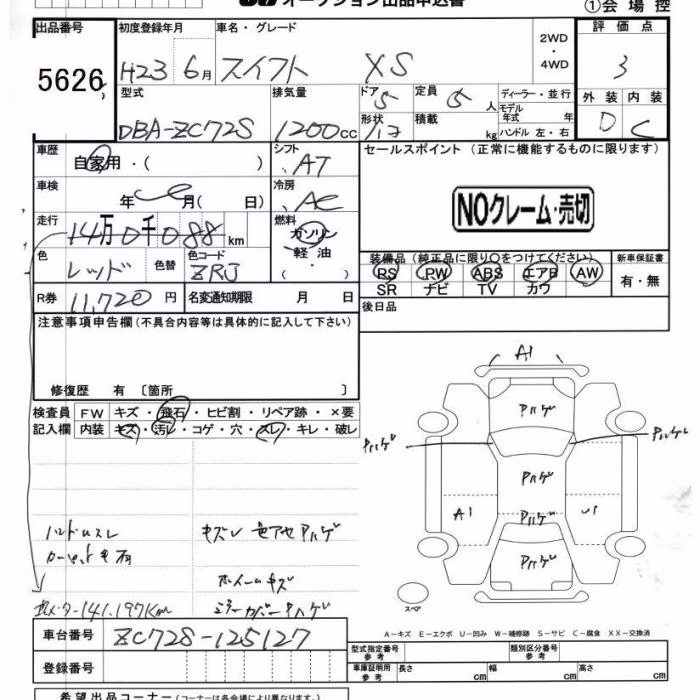 オークション出品申込書
①会場控
出品番号 初度登録年月 車名・グレード 2WD・4WD 評価点
5626 H23 6月 スイフト XS 3
型式 排気量 ドア 5 定員 5人 ディーラー・並行 外装 内装
DBA-ZC72S 1200cc 形状 積載 kg モデル年式 年 ハンドル 左・右 D C
車歴 自家用・( ) シフト AT セールスポイント (正常に機能するものに限ります)
車検 年 月( 日) 冷房 AC
NOクレーム・売切
走行 14万0千088km 燃料 ガソリン・軽油・( )
色 レッド 色替 色コード ZRJ 装備品(純正品に限り○をつけてください) 新車保証書
PS PW ABS エアB AW 有・無
SR ナビ TV カワ
R券 11,720円 名変通知期限 月 日 後日品
注意事項申告欄(不具合内容等は具体的に記入して下さい)
修復歴 有 〔箇所 〕
検査員記入欄 FW キズ・飛石・ヒビ割・リペア跡・×要
内装 キズ・汚レ・コゲ・穴・スレ・キレ・破レ
A1
Pハゲ
Pハゲ Pハゲ
Pハゲ
A1 Pハゲ U1
Pハゲ
スペア
ハンドルスレ キズレ 色アセ Pハゲ
ホイールキズ
141,197Km ミラーカバーPハゲ
A-キズ E-エクボ U-凹み W-補修跡 S-サビ C-腐食 XX-交換済
車台番号 ZC72S-125127
型式指定番号 参考 類別区分番号 参考
登録番号 車庫証明用 参考 長さ cm 幅 cm 高さ cm
希望出品コーナー(コーナーは各会場により異なります。)